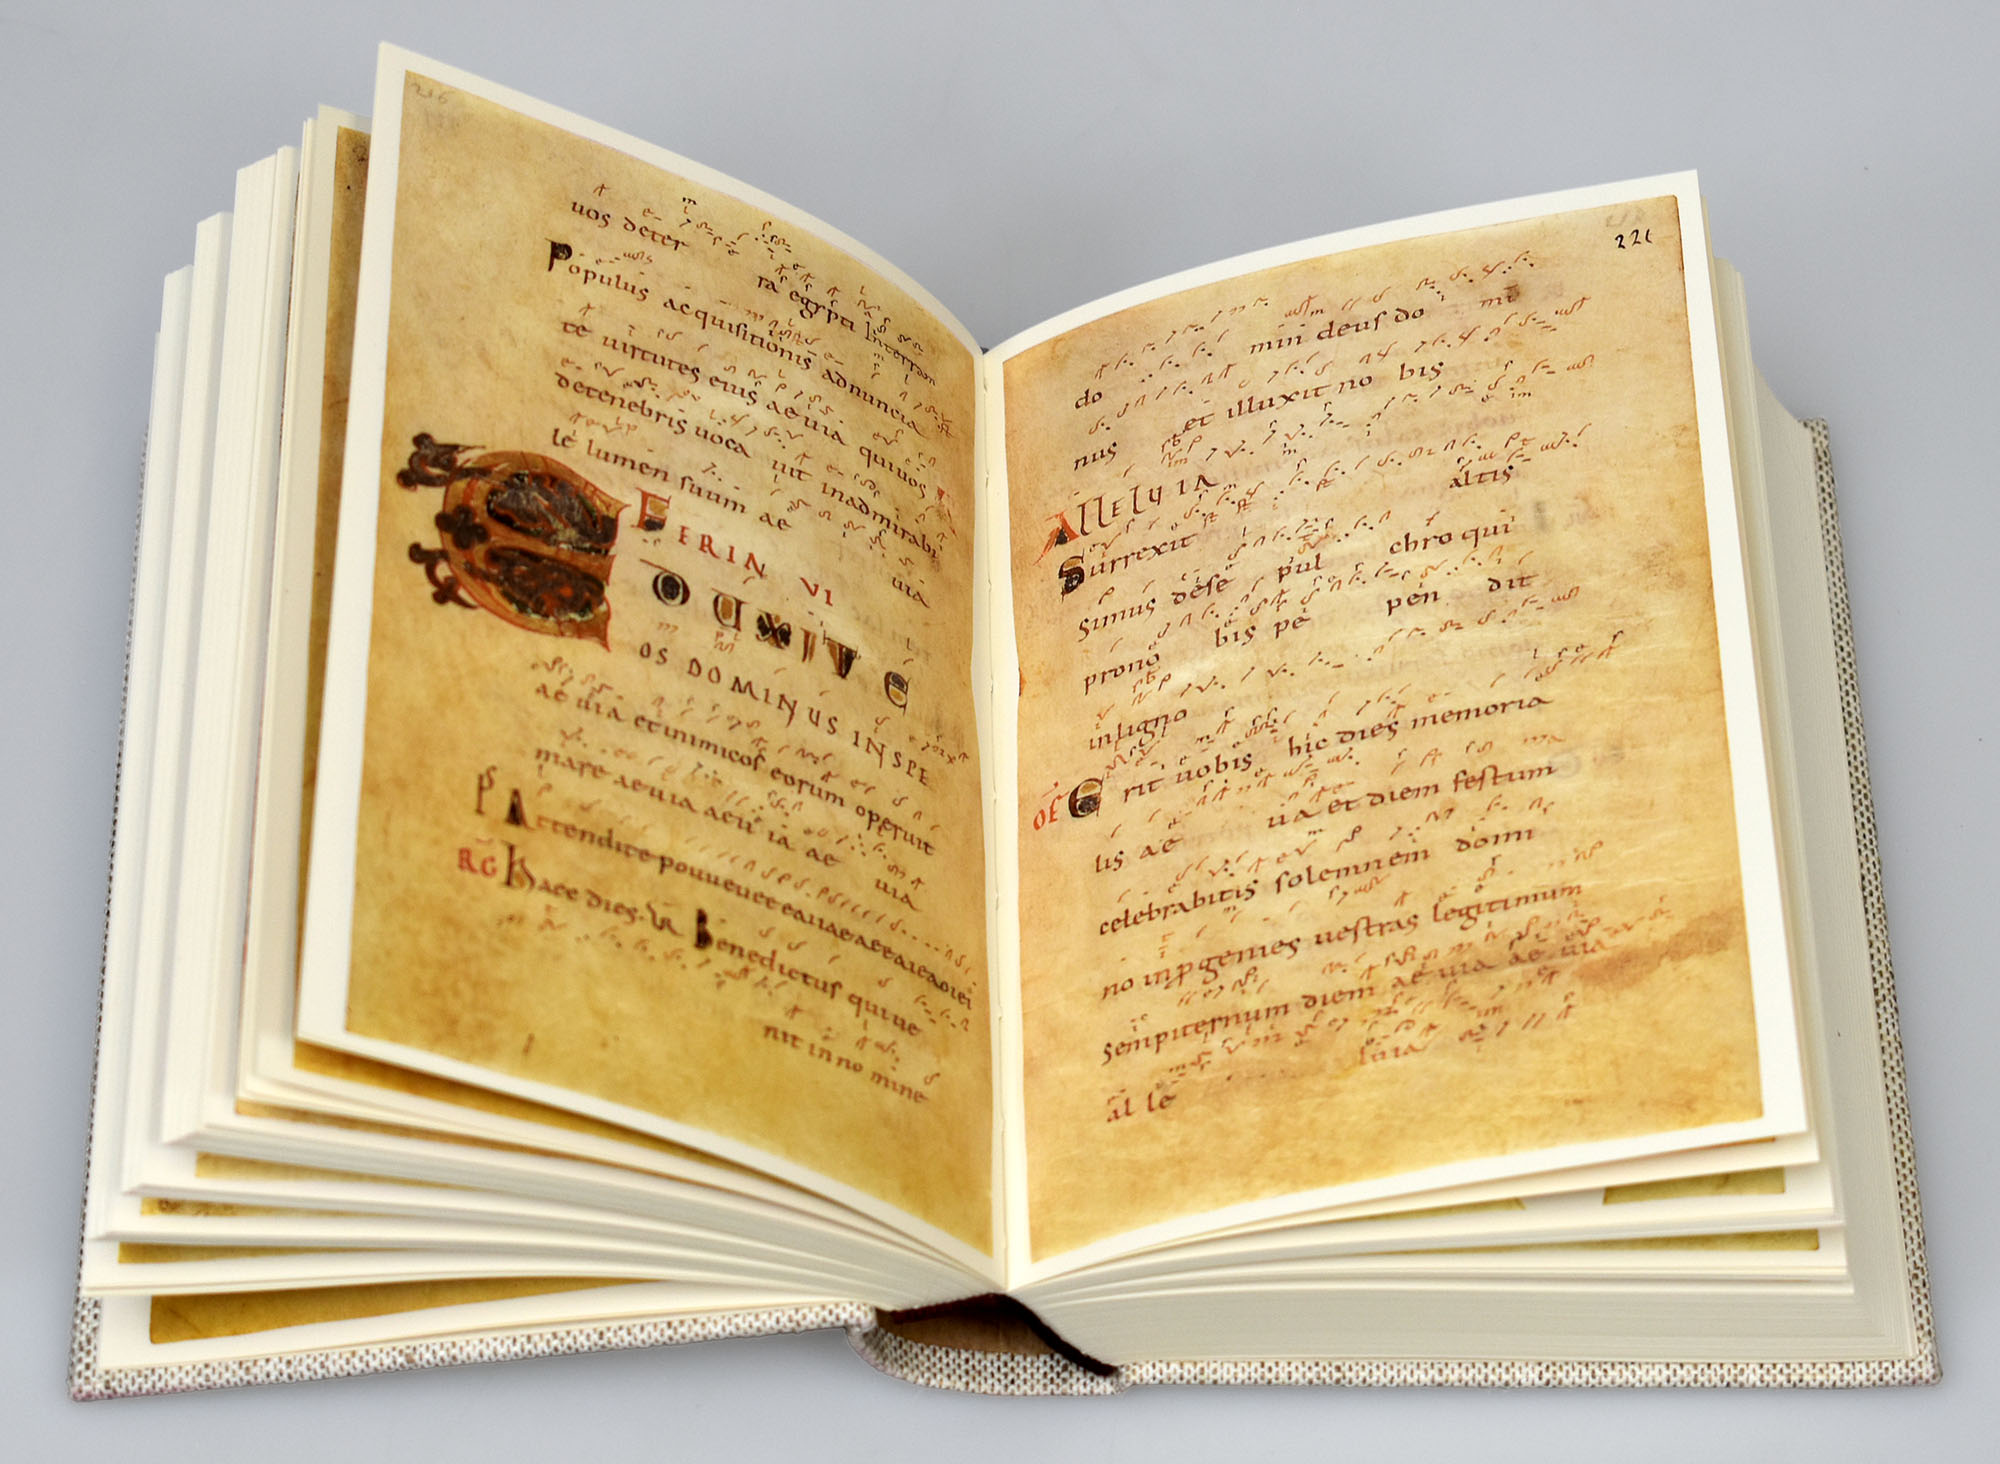 216
uos deter ra egypti Interram
Populus acquisitionis adnuncia
te uirtutes eius aeuia quiuos
detenebris uoca uit inadmirabi
le lumen suum ae uia
FERIN VI
EDUXIT E
OS DOMINUS INSPE
ae uia et inimicos eorum operuit
mare aeuia aeu ia ae uia
PS Attendite
RG Haec dies. Benedictus quiue
nit in no mine
221
do mini deus do mi
nus et illuxit no bis
Alleluia altis
Surrexit
simus dese pul chro qui
prono bis pe pen dit
inligno
OF Erit uobis hic dies memoria
lis ae uia et diem festum
celebrabitis solemnem domi
no inprogenies uestras legitimum
sempiternum diem ae uia ae uia
al le luia